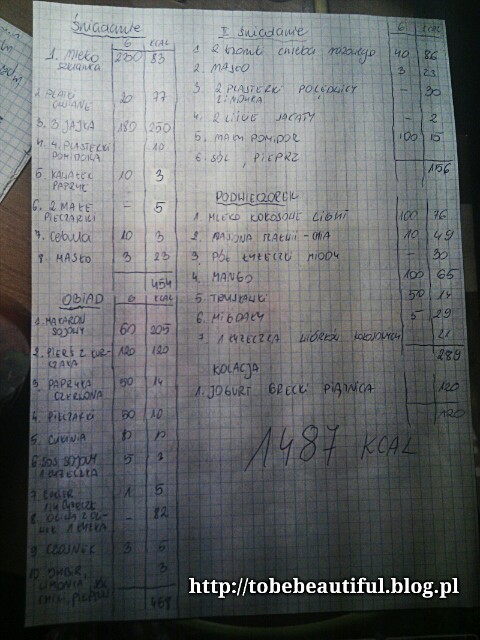 Śniadanie
G KCAL
1. Mleko
szklanka 250 83
20 77
3. 3 JAJKA 180 250
4. 4 PLASTERKI
POMIDORA 10
5. KAWAŁEK
PAPRYKI 10 3
6. 2 MAŁE
PIECZARKI - 5
7. Cebula 10 3
8. MASŁO 3 23
454
OBIAD G KCAL
1. MAKARON
SOJOWY 60 205
2. PIERŚ Z KUR-
CZAKA 120 120
3. PAPRYKA
CZERWONA 50 14
4. PIECZARKI 50 10
5. CUKINIA
6. SOS SOJOWY
1 ŁYŻECZKA 5
7. 1 5
8. 82
9. CZOSNEK 3 5
10. IMBIR, 3
468
II Śniadanie G KCAL
1. 2 kromki chleba razowego 40 86
2. MASŁO 3 23
3. 2 PLASTERKI POLĘDWICY - 30
4. 2 LIŚCIE SAŁATY - 2
5. MAŁY POMIDOR 100 15
6. SÓL, PIEPRZ
156
PODWIECZOREK
1. MLEKO KOKOSOWE LIGHT 100 76
2. NASIONA 10 49
3. PÓŁ ŁYŻECZKI MIODU - 30
4. MANGO 100 65
5. TRUSKAWKI 50 14
6. MIGDAŁY 5 29
7. 1 ŁYŻECZKA WIÓRKÓW KOKOSOWYCH
289
KOLACJA
1. JOGURT GRECKI PIĄTNICA 120
120
1487 KCAL
http://tobebeautiful.blog.pl